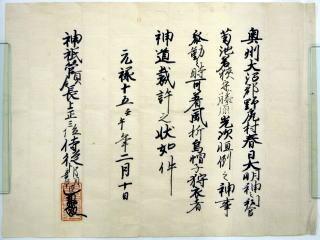 奥州大沼郡野尻村春日大明神祠官
菊池若狭守藤原光次恒例之神事
参勤之時可着風折烏帽子狩衣者
神道裁許之状如件
元禄十五壬午年二月十日
神祇管領長上正三位侍従卜部